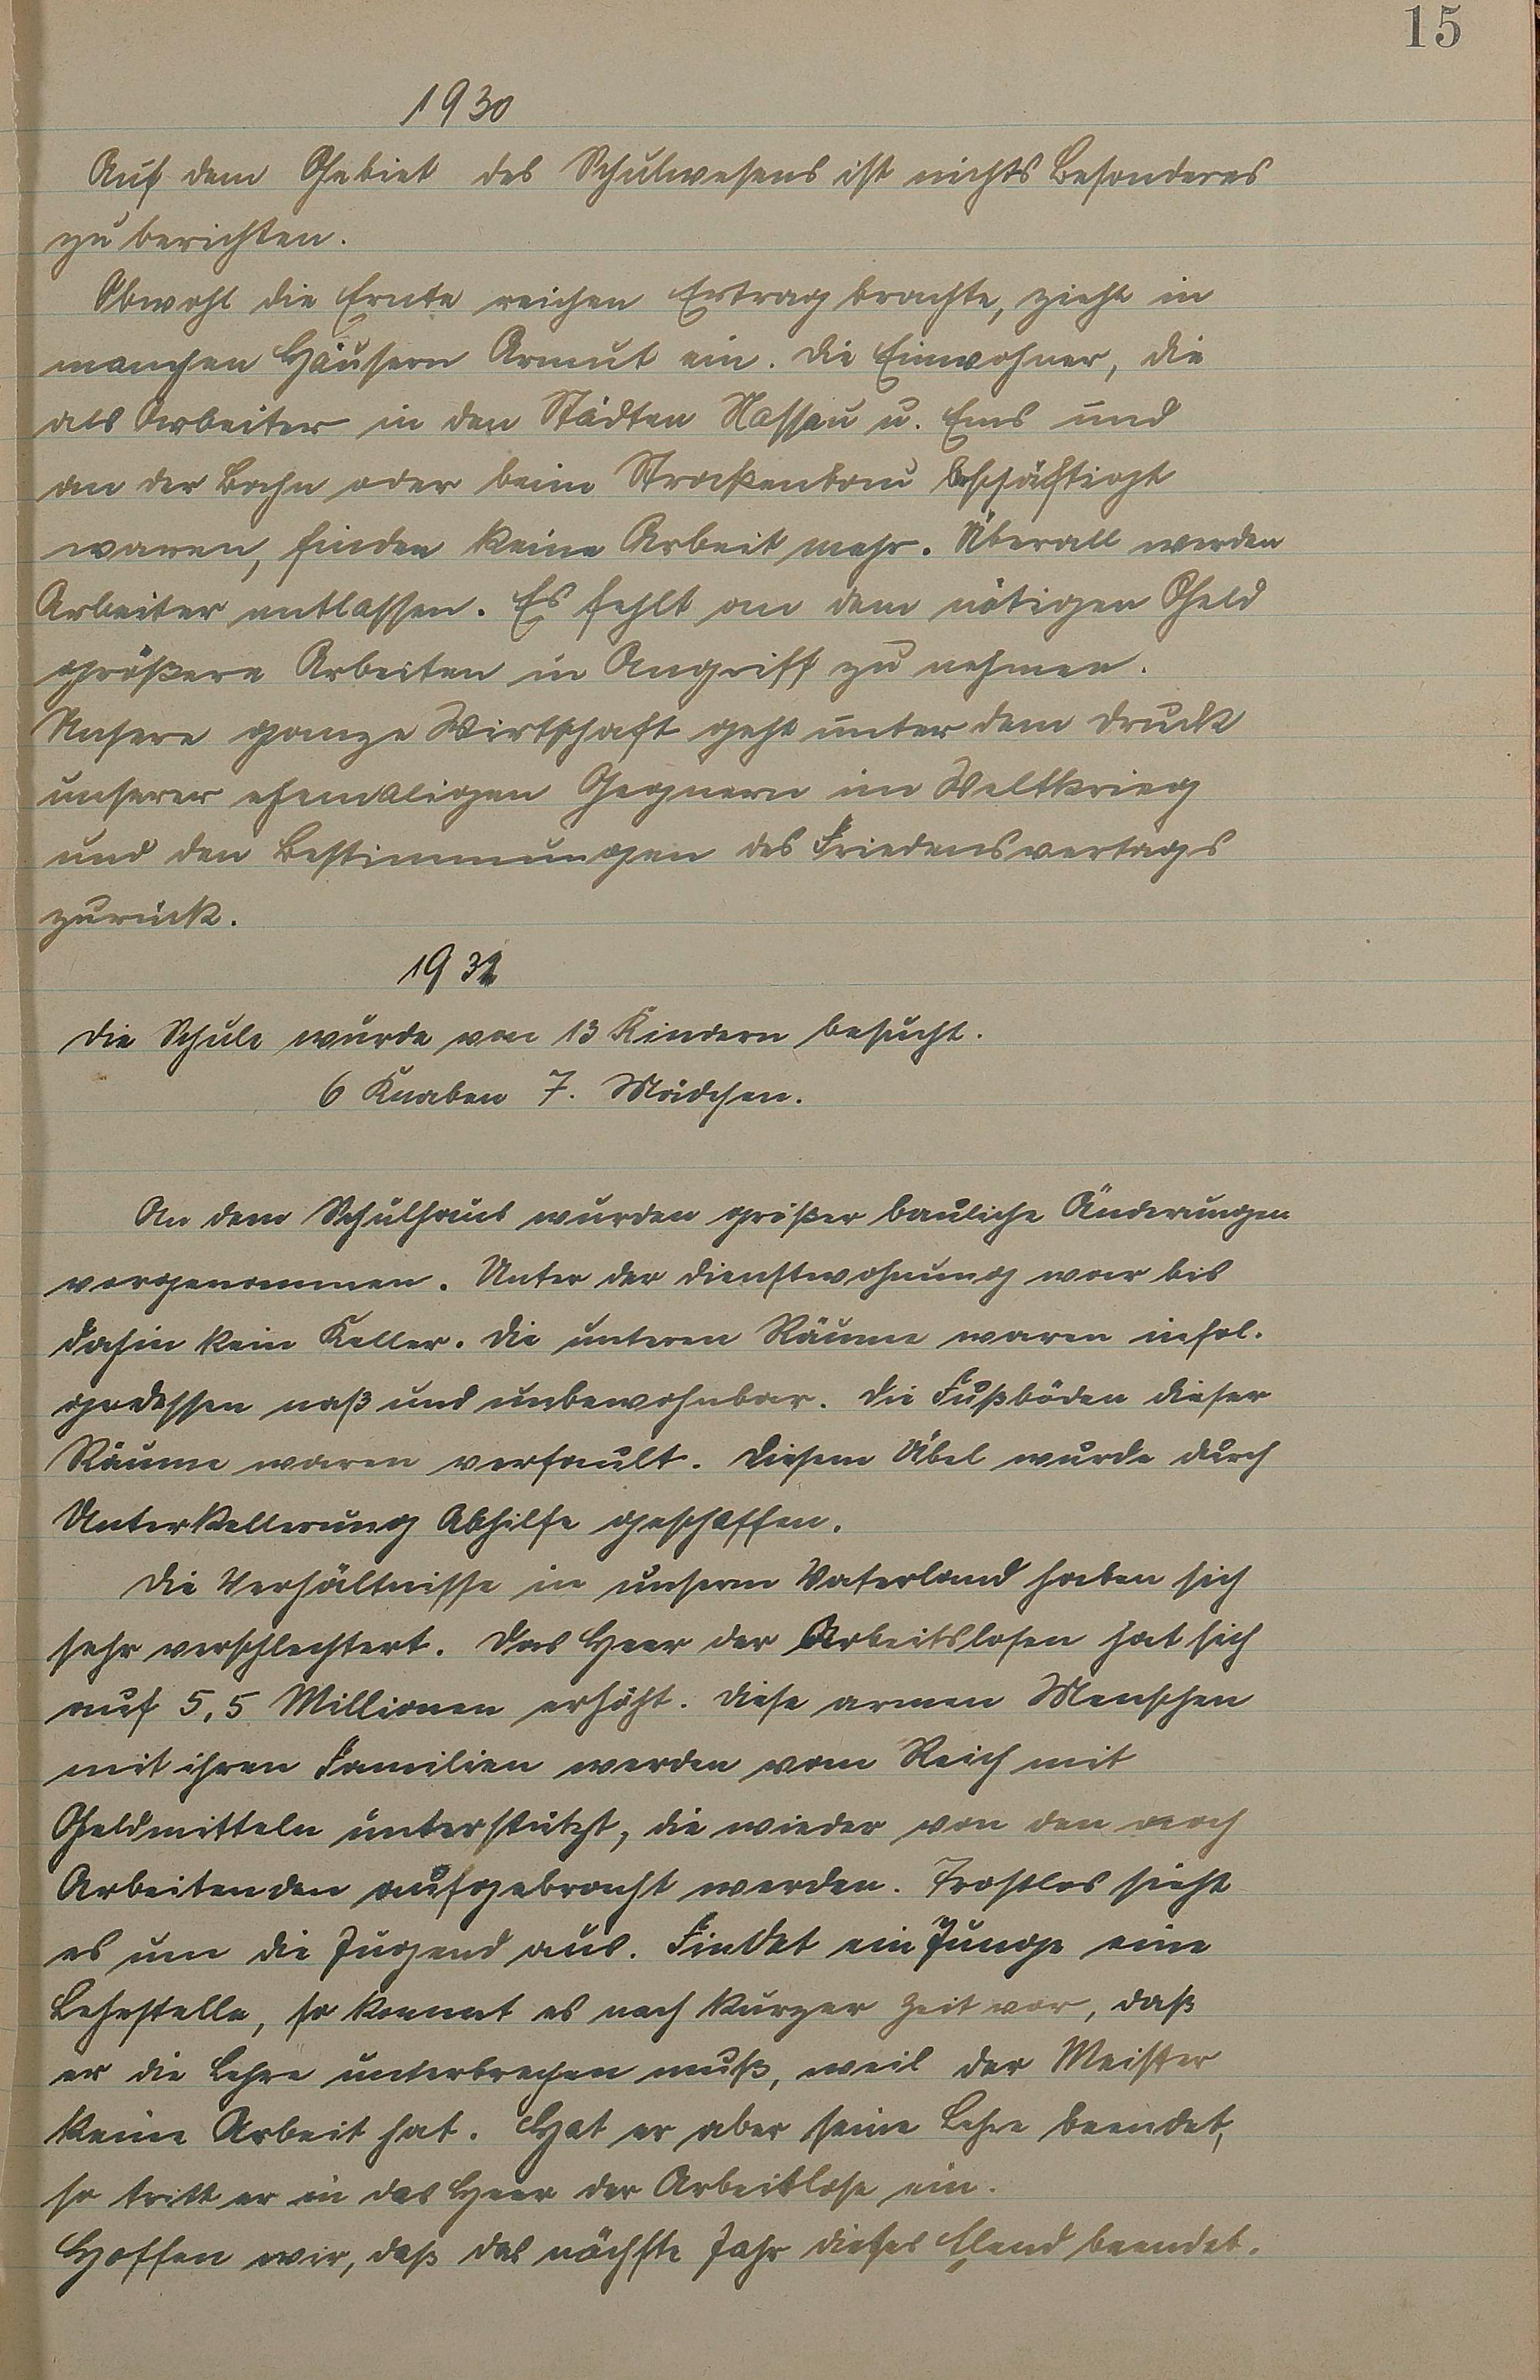 15
1930
Auf dem Gebiet des Schulwesens ist nichts Besonderes
zu berichten.
Obwohl die Ernte reichen Ertrag brachte, zieht in
manchen Häusern Armut ein. Die Einwohner, die
als Arbeiter in den Städten Nassau u. Ems und
an der Bahn oder beim Straßenbau beschäftigt
waren, finden keine Arbeit mehr. Überall werden
Arbeiter entlassen. Es fehlt an dem nötigen Geld
größere Arbeiten in Angriff zu nehmen.
Unsere ganze Wirtschaft geht unter dem Druck
unserer ehemaligen Gegnern im Weltkrieg
und den Bestimmungen des Friedensvertags
zurück.
1931
Die Schule wurde von 13 Kindern besucht.
6 Knaben 7. Mädchen.
An dem Schulhaus wurden größer bauliche Änderungen
vorgenommen. Unter der Dienstwohnung war bis
dahin kein Keller. Die unteren Räume waren infol-
gedessen naß und unbewohnbar. Die Fußböden dieser
Räume waren verfault. Diesem Übel wurde durch
Unterkellerung Abhilfe geschaffen.
Die Verhältnisse in unserm Vaterland haben sich
sehr verschlechtert. Das Heer der Arbeitslosen hat sich
auf 5,5 Millionen erhöht. Diese armen Menschen
mit ihren Familien werden vom Reich mit
Geldmitteln unterstützt, die wieder von den noch
Arbeitenden aufgebracht werden. Trostlos sieht
es um die Jugend aus. Findet ein Junge eine
Lehrstelle, so kommt es nach kurzer Zeit vor, daß
er die Lehre unterbrechen muß, weil der Meister
keine Arbeit hat. Hat er aber seine Lehre beendet,
so tritt er in das Heer der Arbeitlose ein.
Hoffen wir, daß das nächste Jahr dieses Elend beendet.